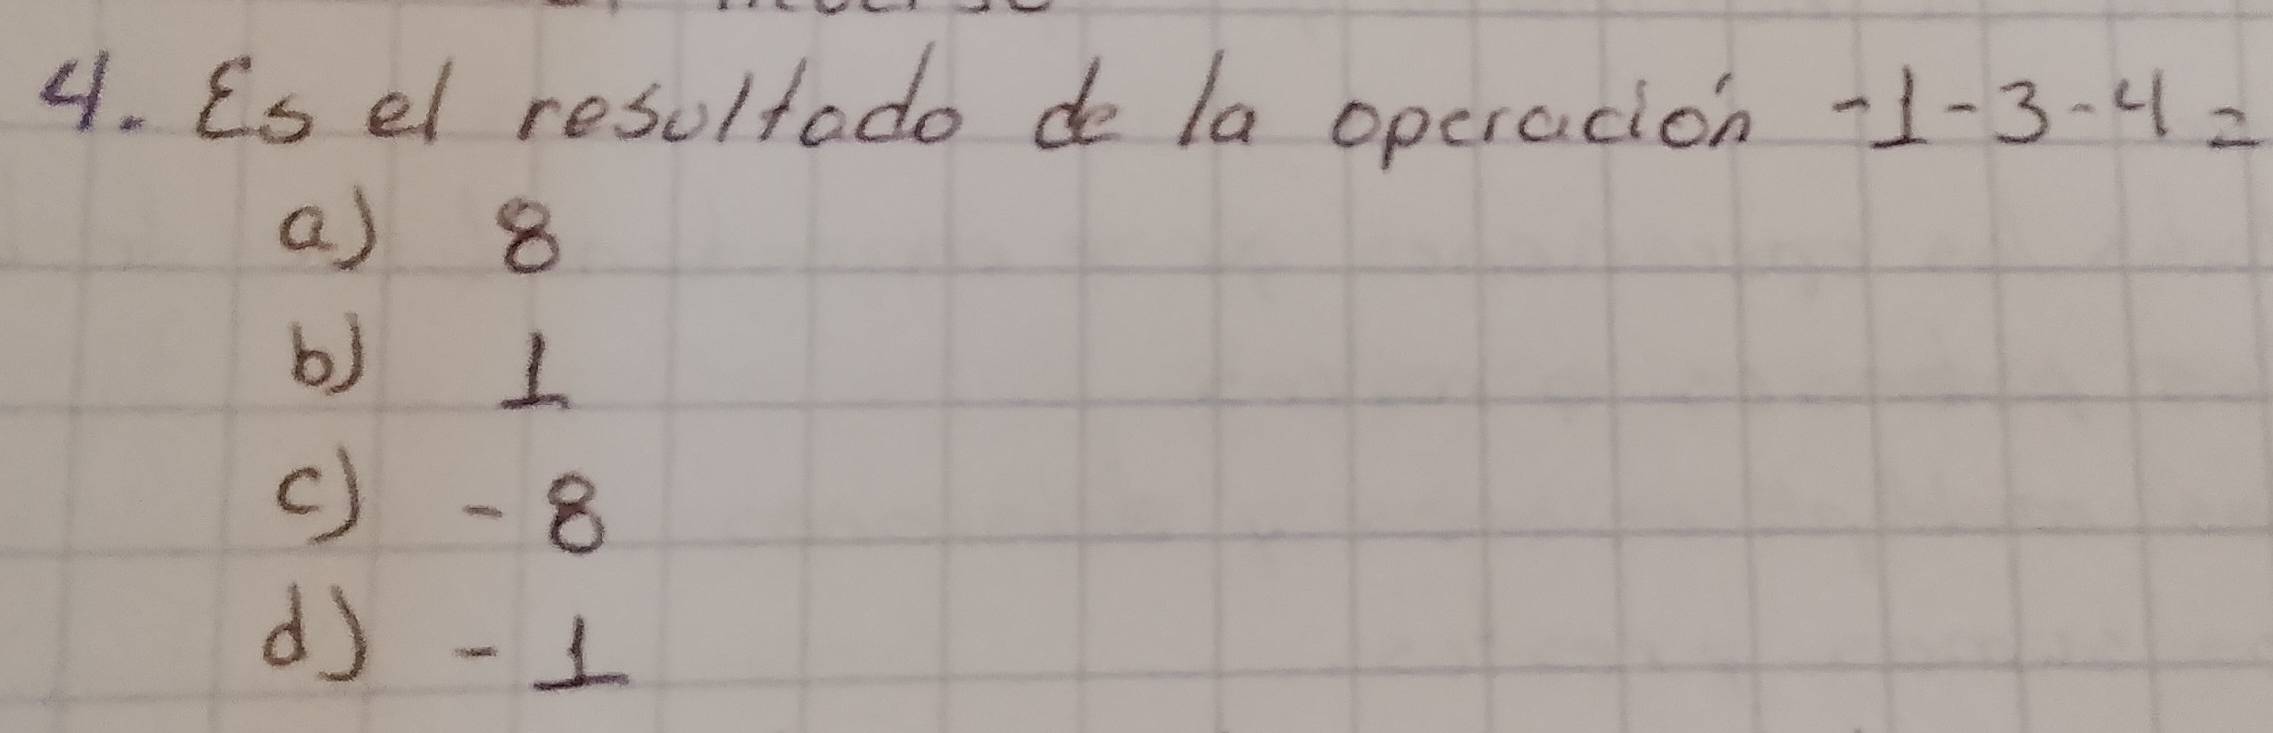 4. Es el resultado de la operación -1-3-4=
a) 8
b) 1
c) -8
d) -1